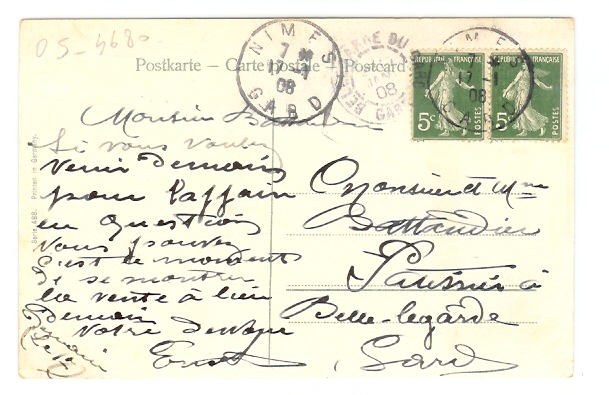 05-4680
Postkarte – Carte postale – Postcard
NIMES
7 M
17 - 1
08
GARD
BELLEGARDE DU
08
GARD
NIMES
17 - 1
08
GARD
RÉPUBLIQUE FRANÇAISE
5c
POSTES
5c
POSTES
Serie 488. Printed in Germany.
Monsieur
Si vous voulez
venir Demain
pour l'affair
en question
Vous pouvez
c'est le moment
de se montrer
la vente à lieu
Demain
Votre Devoué
Ernest
Monsieur et Mme
Battandier
à
Belle-legarde
Gard